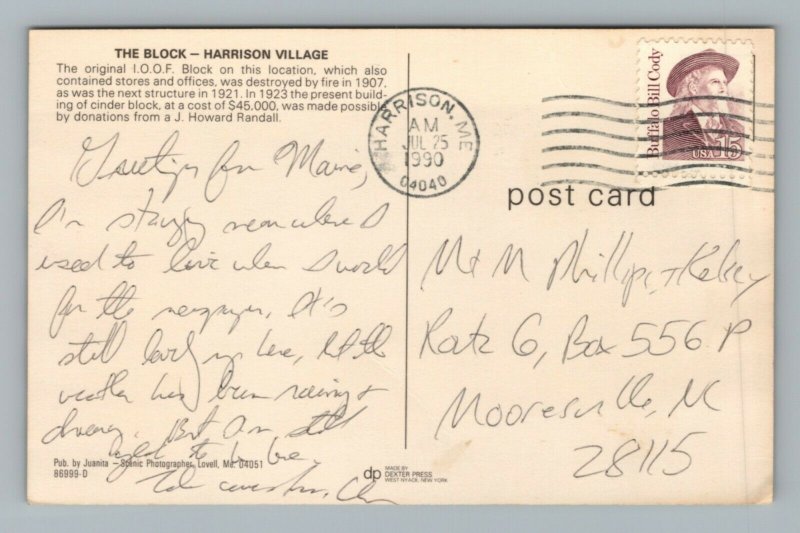 THE BLOCK — HARRISON VILLAGE
The original I.O.O.F. Block on this location, which also
contained stores and offices, was destroyed by fire in 1907,
as was the next structure in 1921. In 1923 the present build-
ing of cinder block, at a cost of $45,000, was made possible
by donations from a J. Howard Randall.
Greetings from Maine,
I'm staying near where I
used to live when I worked
for the newspaper. It's
still lovely up here, but the
weather has been rainy &
dreary. But I'm still
to be here.
Take care
Pub. by Juanita — Scenic Photographer, Lovell, Me. 04051
86999-D
HARRISON, ME
AM
JUL 25
1990
04040
Buffalo Bill Cody
USA 15
post card
M & M Phillips & Kelsey
Rate 6, Box 556 P
Mooresville, NC
28115
dp
MADE BY
DEXTER PRESS
WEST NYACK, NEW YORK